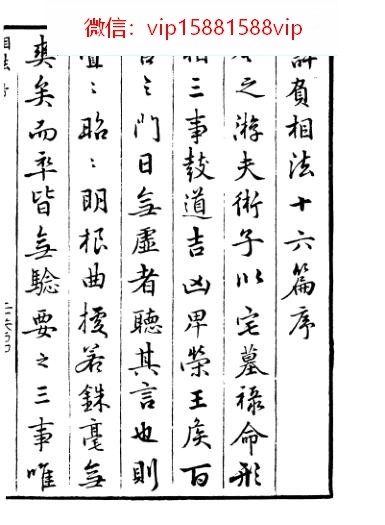 微信：vip15881588vip
許負相法十六篇序
之游夫術子以宅墓祿命形
相三事鼓道吉凶畀榮王侯百
言之門日無虛者聽其言也則
亹〻昭〻明根曲援若銖毫無
爽矣而卒皆無驗要之三事唯
相法